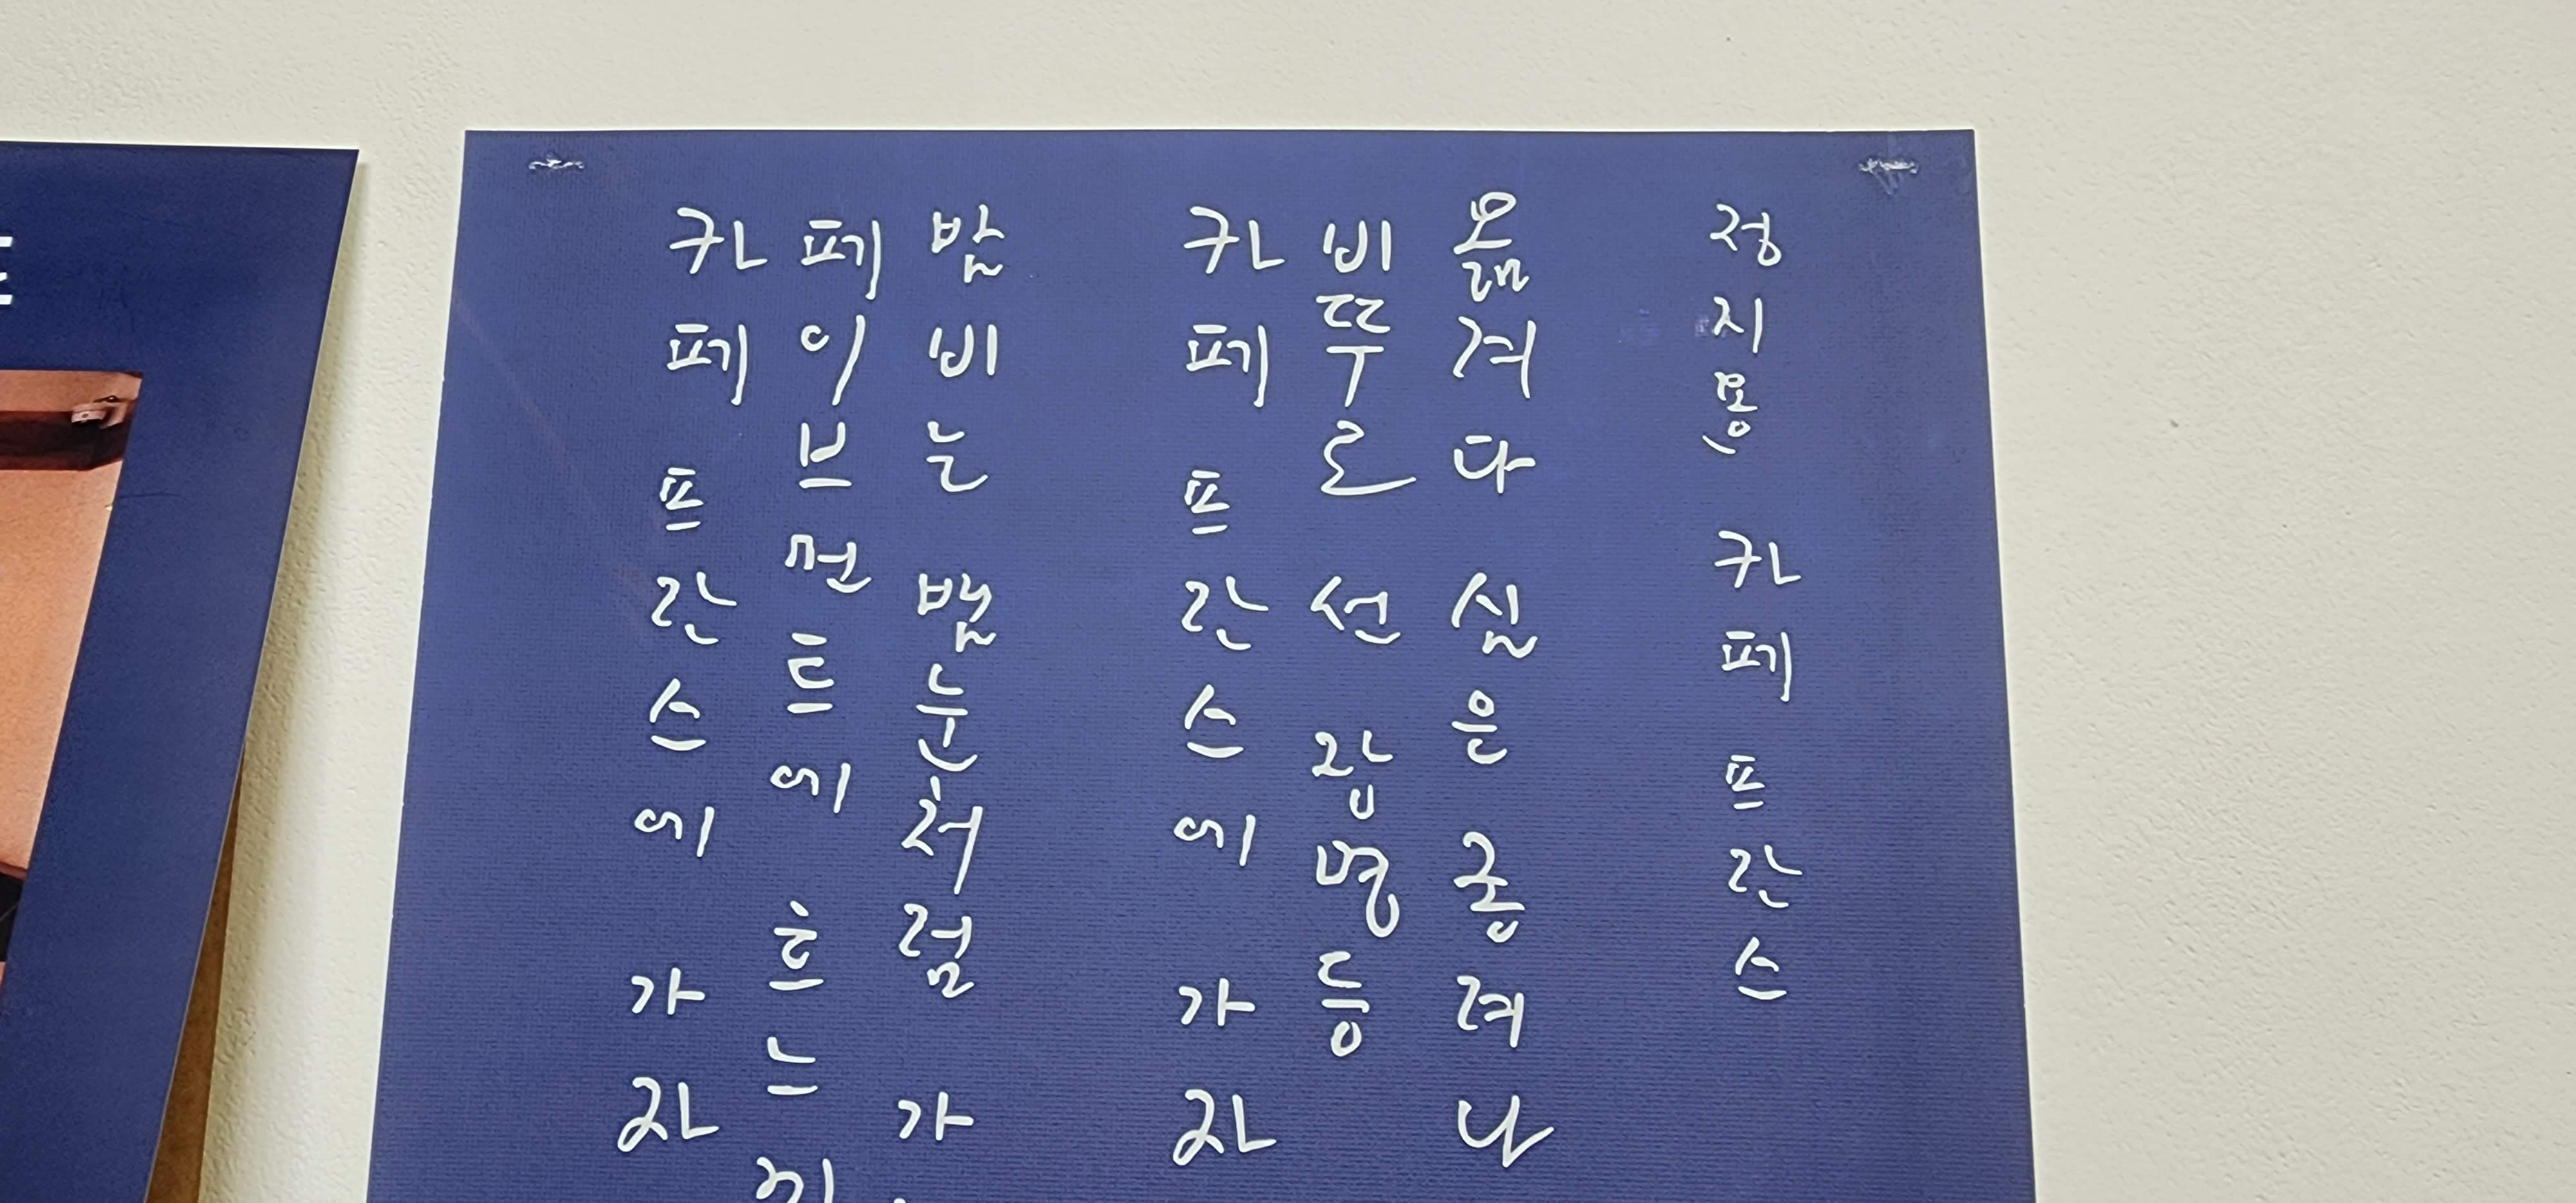 정지용 카페 프란스
옮겨다 심은 종려나
비뚜로 선 장명등
카페 프란스에 가자
밤비는 뱀눈처럼 가
페이브먼트에 흐느끼
카페 프란스에 가자